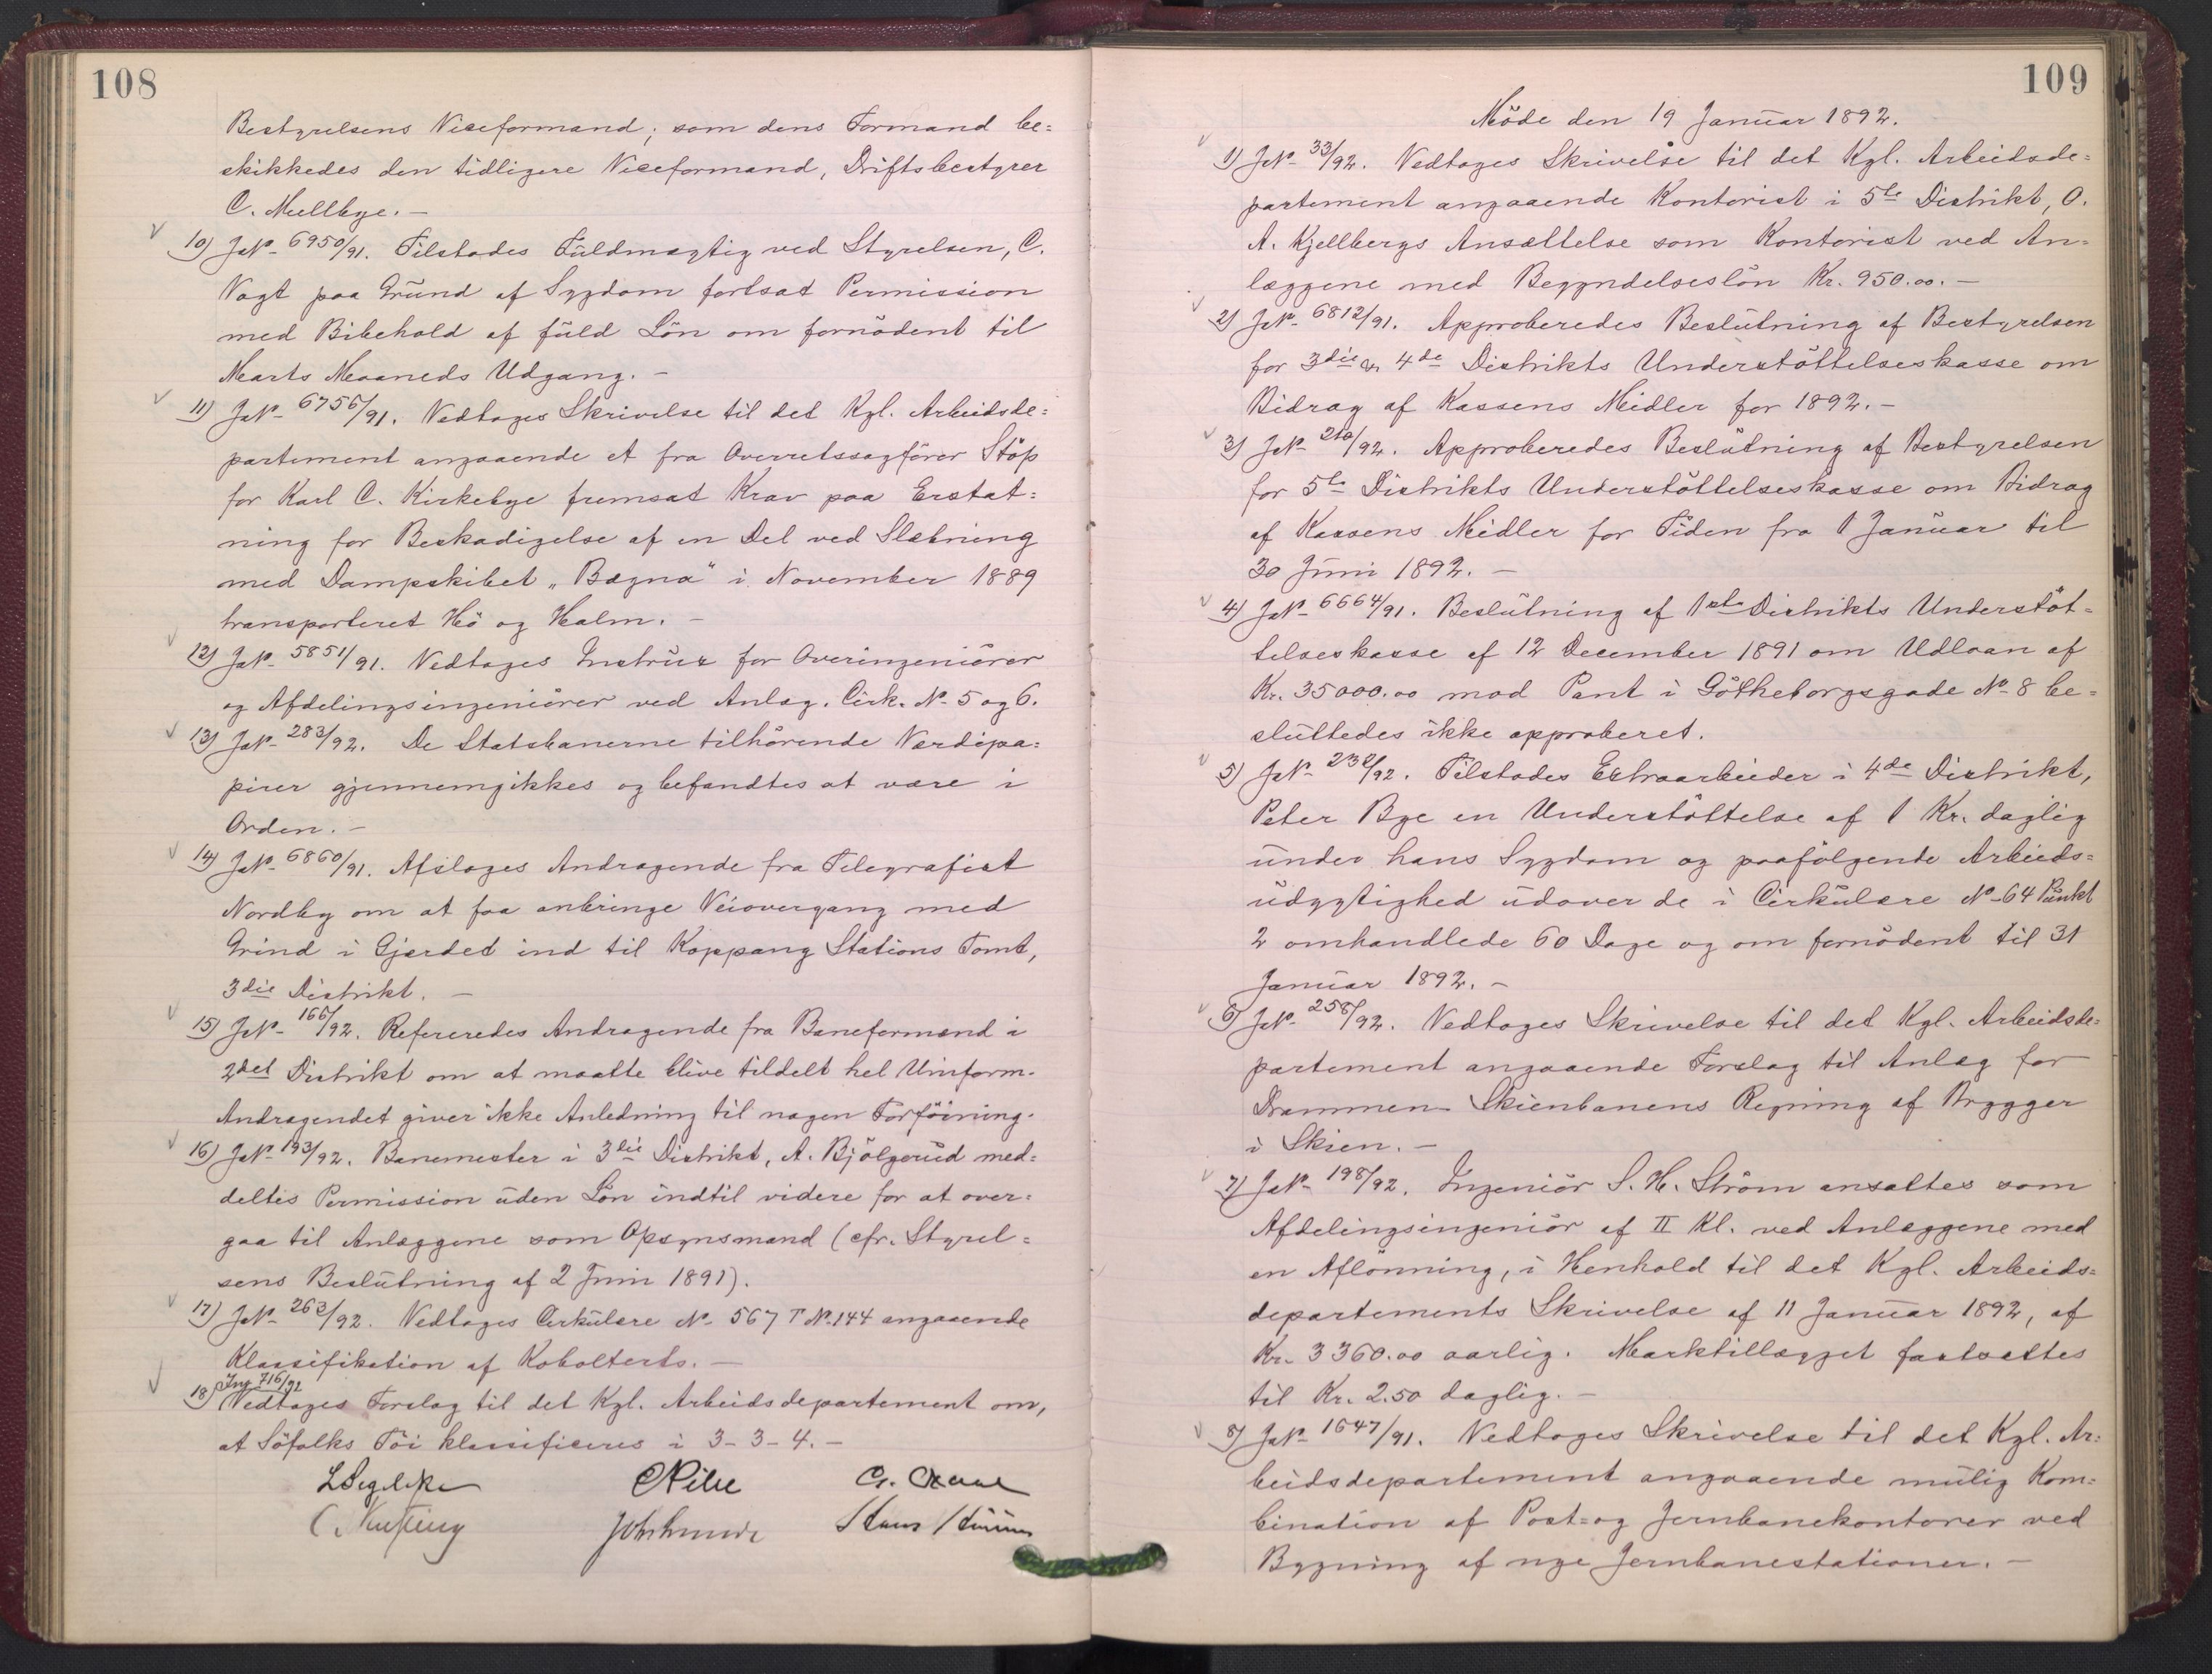 108
Bestyrelsens Viceformand; som dens Formand be=
skikkedes den tidligere Viceformand, Driftsbestyrer
C. Mellbye. —
10) J.N. 6950/91. Tilstodes Fuldmægtig ved Styrelsen, C.
Vogt paa Grund af Sygdom fortsat Permission
med Bibehold af fuld Lön om fornödent til
Marts Maaneds Udgang. —
11) J.N. 6756/91. Vedtoges Skrivelse til det Kgl. Arbeidsde=
partement angaaende et fra Overretssagförer Stöp
for Karl C. Kirkebye fremsat Krav paa Erstat=
ning for Beskadigelse af en Del ved Slæbning
med Dampskibet „Bægna" i November 1889
transporteret Hö og Halm. —
12) J.N. 5851/91. Vedtoges Instrux for Overingeniörer
og Afdelingsingeniörer ved Anlæg. Cirk. N. 5 og 6.
13) J.N. 283/92. De Statsbanerne tilhörende Værdipa=
pirer gjennemgikkes og befandtes at være i
Orden. —
14) J.N. 6860/91. Afsloges Andragende fra Telegrafist
Nordby om at faa anbringe Veiovergang med
Grind i Gjerdet ind til Koppang Stations Tomt,
3die Distrikt. —
15) J.N. 166/92. Refereredes Andragende fra Baneformænd i
2det Distrikt om at maatte blive tildelt hel Uniform.
Andragendet giver ikke Anledning til nogen Forföining.
16) J.N. 193/92. Banemester i 3die Distrikt, A. Bjölgerud med=
deltes Permission uden Lön indtil videre for at over=
gaa til Anlæggene som Opsynsmand (cfr. Styrel=
sens Beslutning af 2 Juni 1891).
17) J.N. 263/92. Vedtoges Cirkulære N. 567 T N. 144 angaaende
Klassifikation af Kobolterts. —
Jnr 716/92
18) Vedtoges Forslag til det Kgl. Arbeidsdepartement om,
at Söfolks Töi klassificeres i 3-3-4. —
CPihl
109
Möde den 19 Januar 1892.
1) J.N. 33/92. Vedtoges Skrivelse til det Kgl. Arbeidsde=
partement angaaende Kontorist i 5te Distrikt, O.
A. Kjellbergs Ansættelse som Kontorist ved An=
læggene med Begyndelseslön Kr. 950.00. —
2) J.N. 6812/91. Approberedes Beslutning af Bestyrelsen
for 3die & 4de Distrikts Understöttelseskasse om
Bidrag af Kassens Midler for 1892. —
3) J.N. 210/92. Approberedes Beslutning af Bestyrelsen
for 5te Distrikts Understöttelseskasse om Bidrag
af Kassens Midler for Tiden fra 1 Januar til
30 Juni 1892. —
4) J.N. 6664/91. Beslutning af 1ste Distrikts Understöt=
telseskasse af 12 December 1891 om Udlaan af
Kr. 35000.00 mod Pant i Götheborgsgade N. 8 be=
sluttedes ikke approberet.
5) J.N. 232/92. Tilstodes Extraarbeider i 4de Distrikt,
Peter Bye en Understöttelse af 1 Kr. daglig
under hans Sygdom og paafölgende Arbeids=
udygtighed udover de i Cirkulære N. 64 Punkt
2 omhandlede 60 Dage og om fornödent til 31
Januar 1892. —
6) J.N. 258/92. Vedtoges Skrivelse til det Kgl. Arbeidsde=
partement angaaende Forslag til Anlæg for
Drammen Skienbanens Regning af Brygger
i Skien. —
7) J.N. 198/92. Ingeniör S. H. Ström ansattes som
Afdelingsingeniör af II Kl. ved Anlæggene med
en Aflönning, i Henhold til det Kgl. Arbeids=
departements Skrivelse af 11 Januar 1892, af
Kr. 3360.00 aarlig. Marktillægget fastsattes
til Kr. 2.50 daglig. —
8) J.N. 1647/91. Vedtoges Skrivelse til det Kgl. Ar=
beidsdepartement angaaende mulig Kom=
bination af Post= og Jernbanekontorer ved
Bygning af nye Jernbanestationer. —